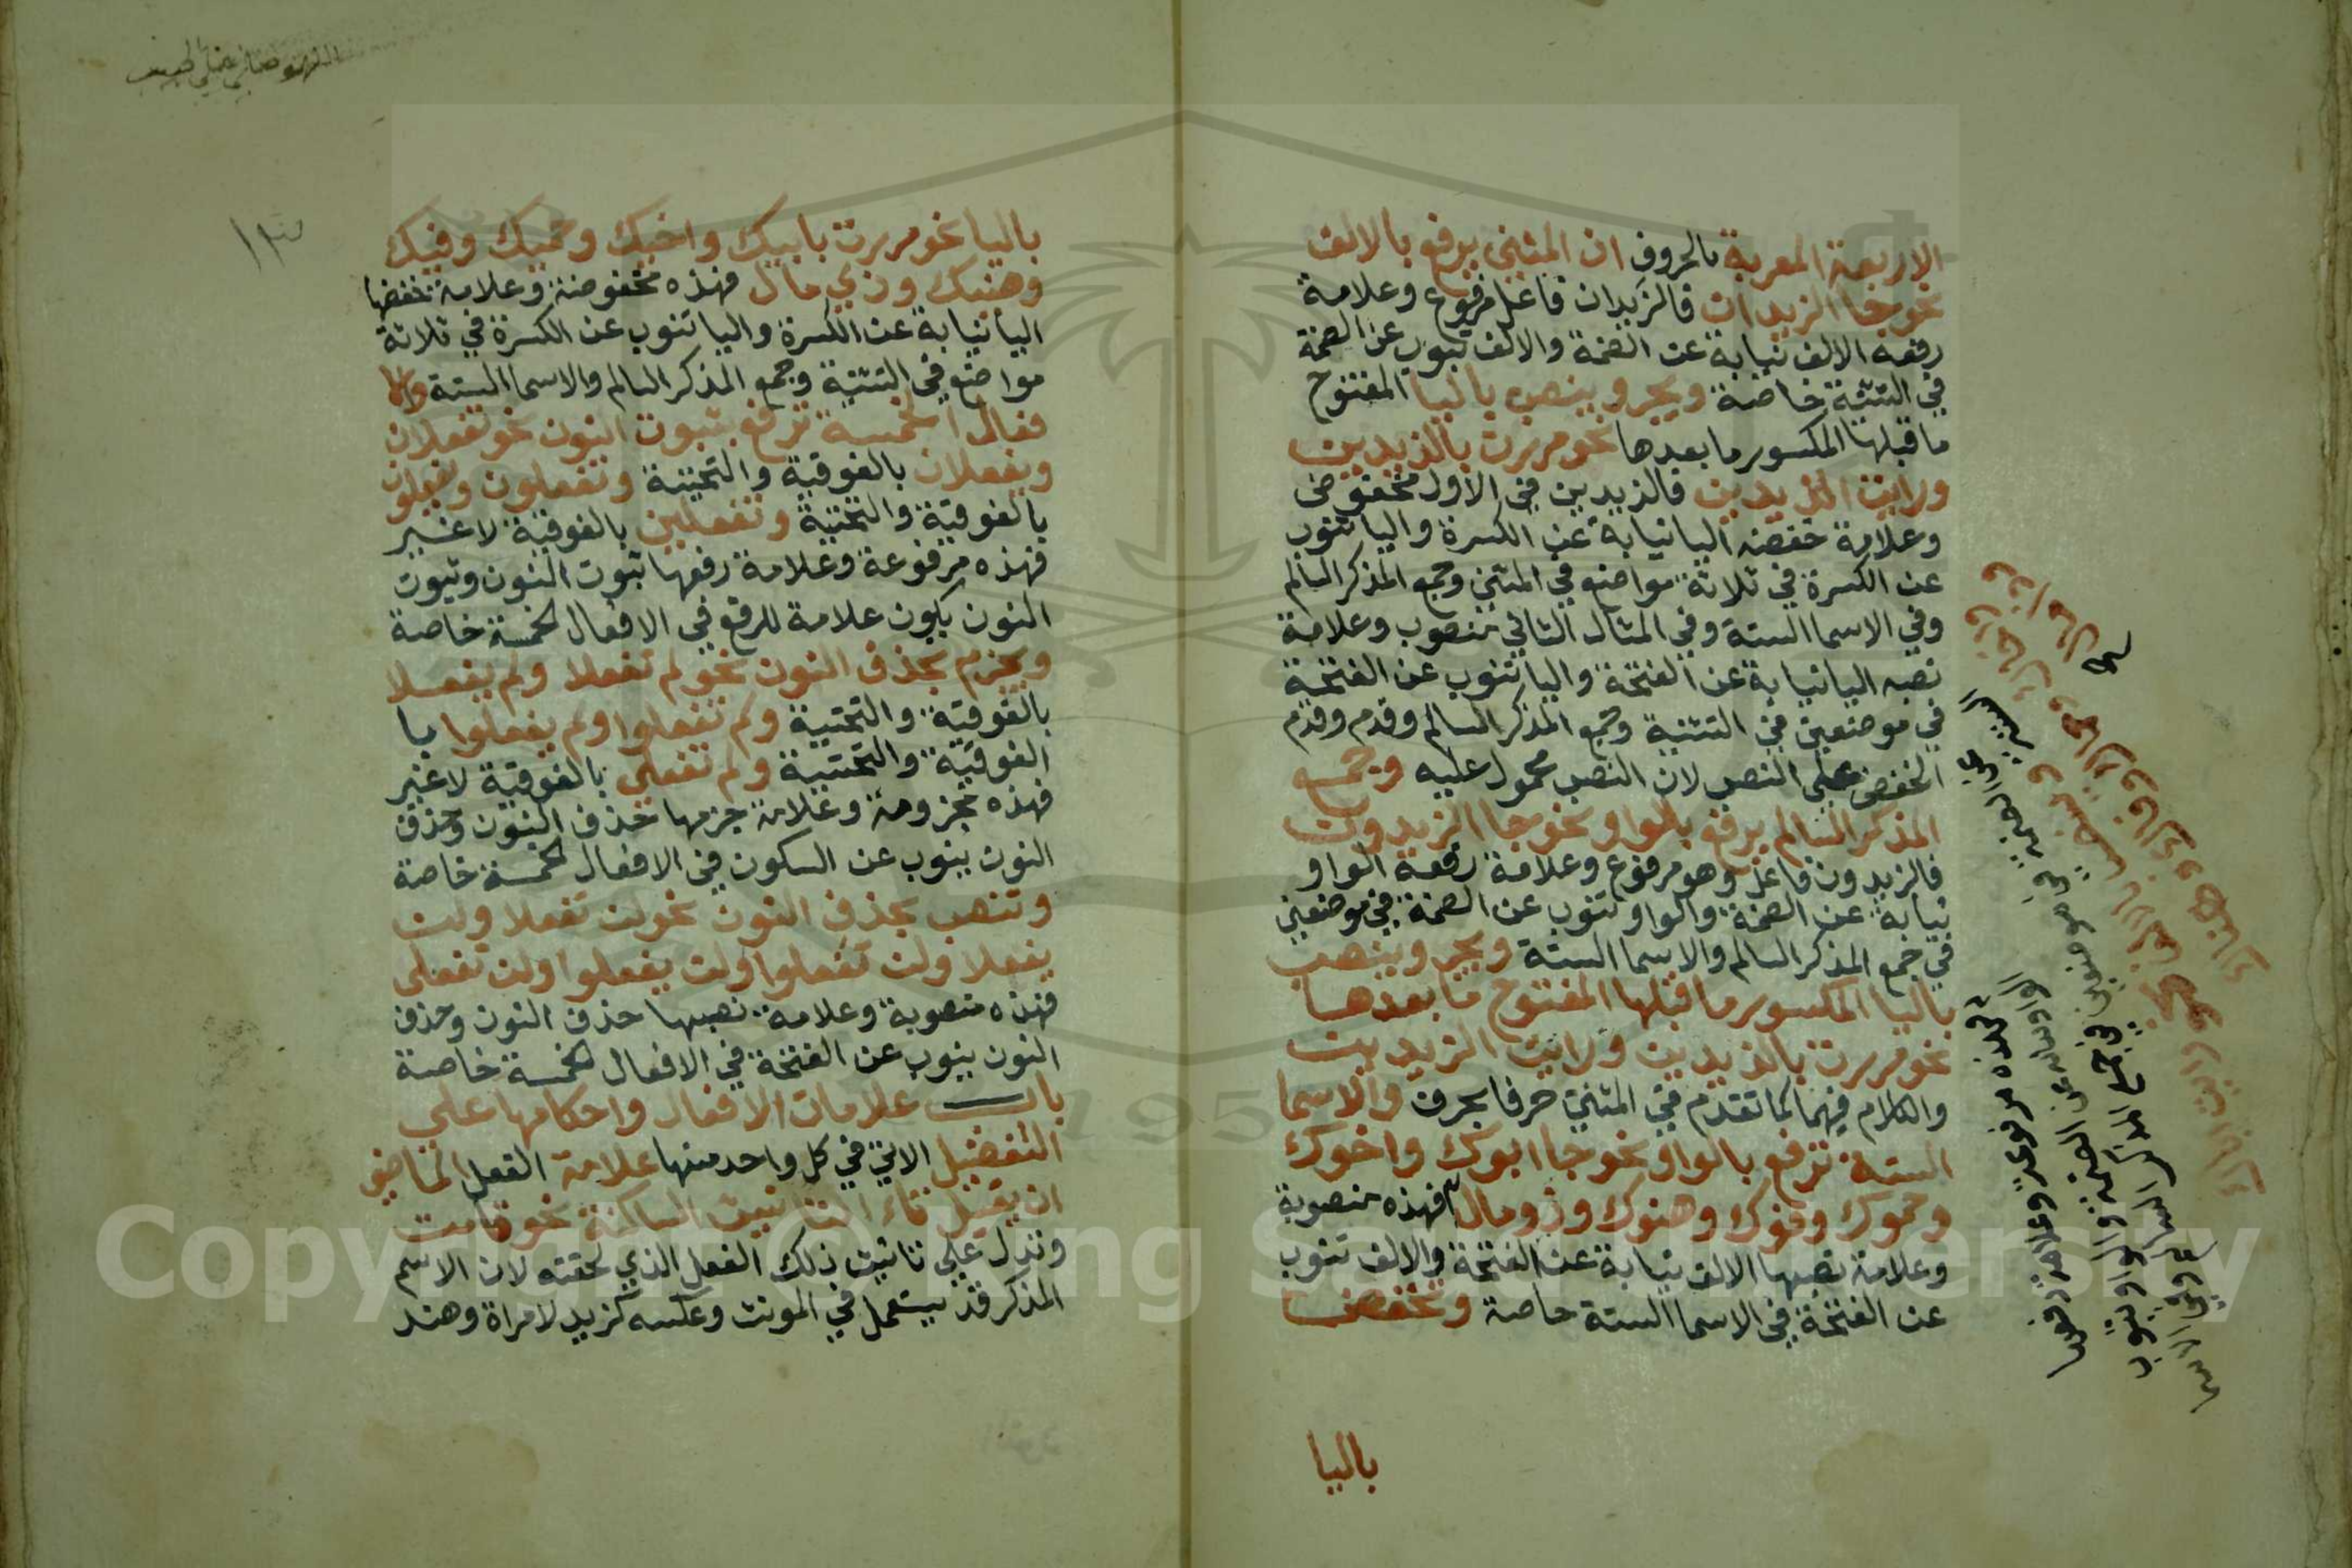 الاربعة المعربة بالحروف ان المثنى يرفع بالالف
نحو جا الزيدان فالزيدان فاعل مرفوع وعلامة
رفعه الالف نيابة عن الضمة والالف تنوب عن الضمة
في التثنية خاصة ويجر وينصب باليا المفتوح
ما قبلها المكسور ما بعدها نحو مررت بالزيدين
ورايت الزيدين فالزيدين في الاول مخفوض
وعلامة خفضه اليا نيابة عن الكسرة واليا تنوب
عن الكسرة في ثلاثة مواضع في المثنى وجمع المذكر السالم
وفي الاسما الستة وفي المثال الثاني منصوب وعلامة
نصبه اليا نيابة عن الفتحة واليا تنوب عن الفتحة
في موضعين في التثنية وجمع المذكر السالم وقدم وقدم
الخفض على النصب لان النصب محمول عليه وجمع
المذكر السالم يرفع بالواو نحو جا الزيدون
فالزيدون فاعل وهو مرفوع وعلامة رفعه الواو
نيابة عن الضمة والواو تنوب عن الضمة في موضعين
في جمع المذكر السالم والاسما الستة ويجر وينصب
باليا المكسور ما قبلها المفتوح ما بعدها
نحو مررت بالزيدين ورايت الزيدين
والكلام فيهما كما تقدم في المثنى حرفا بحرف والاسما
الستة ترفع بالواو نحو جا ابوك واخوك
وحموك وفوك وهنوك وذو مال فهذه منصوبة
وعلامة نصبها الالف نيابة عن الفتحة والالف تنوب
عن الفتحة في الاسما الستة خاصة وتخفض
باليا
فهذه مرفوعة وعلامة رفعها
الواو نيابة عن الضمة والواو تنوب
عن الضمة في موضعين في جمع المذكر السالم وفي الاسما
١٣
باليا نحو مررت بابيك واخيك وحميك وفيك
وهنيك وذي مال فهذه مخفوضة وعلامة خفضها
اليا نيابة عن الكسرة واليا تنوب عن الكسرة في ثلاثة
مواضع في التثنية وجمع المذكر السالم والاسما الستة والا
فعال الخمسة ترفع بثبوت النون نحو تفعلان
ويفعلان بالفوقية والتحتية وتفعلون ويفعلون
بالفوقية والتحتية وتفعلين بالفوقية لا غير
فهذه مرفوعة وعلامة رفعها ثبوت النون وثبوت
النون يكون علامة للرفع في الافعال الخمسة خاصة
ويجزم بحذف النون نحو لم تفعلا ولم يفعلا
بالفوقية والتحتية ولم تفعلوا ولم يفعلوا با
الفوقية والتحتية ولم تفعلي بالفوقية لا غير
فهذه مجزومة وعلامة جزمها حذف النون وحذف
النون ينوب عن السكون في الافعال الخمسة خاصة
وتنصب بحذف النون نحو لن تفعلا ولن
يفعلا ولن تفعلوا ولن يفعلوا ولن تفعلي
فهذه منصوبة وعلامة نصبها حذف النون وحذف
النون ينوب عن الفتحة في الافعال الخمسة خاصة
باب علامات الافعال واحكامها على
التفضيل الاتي في كل واحد منها علامة الفعل الماضي
ان يقبل تاء التانيث الساكنة نحو قامت
وتدل على تانيث ذلك الفعل الذي لحقته لان الاسم
المذكر قد يستعمل في المونث وعكسه كزيد لامراة وهند
Copyright © King Saud University
1957